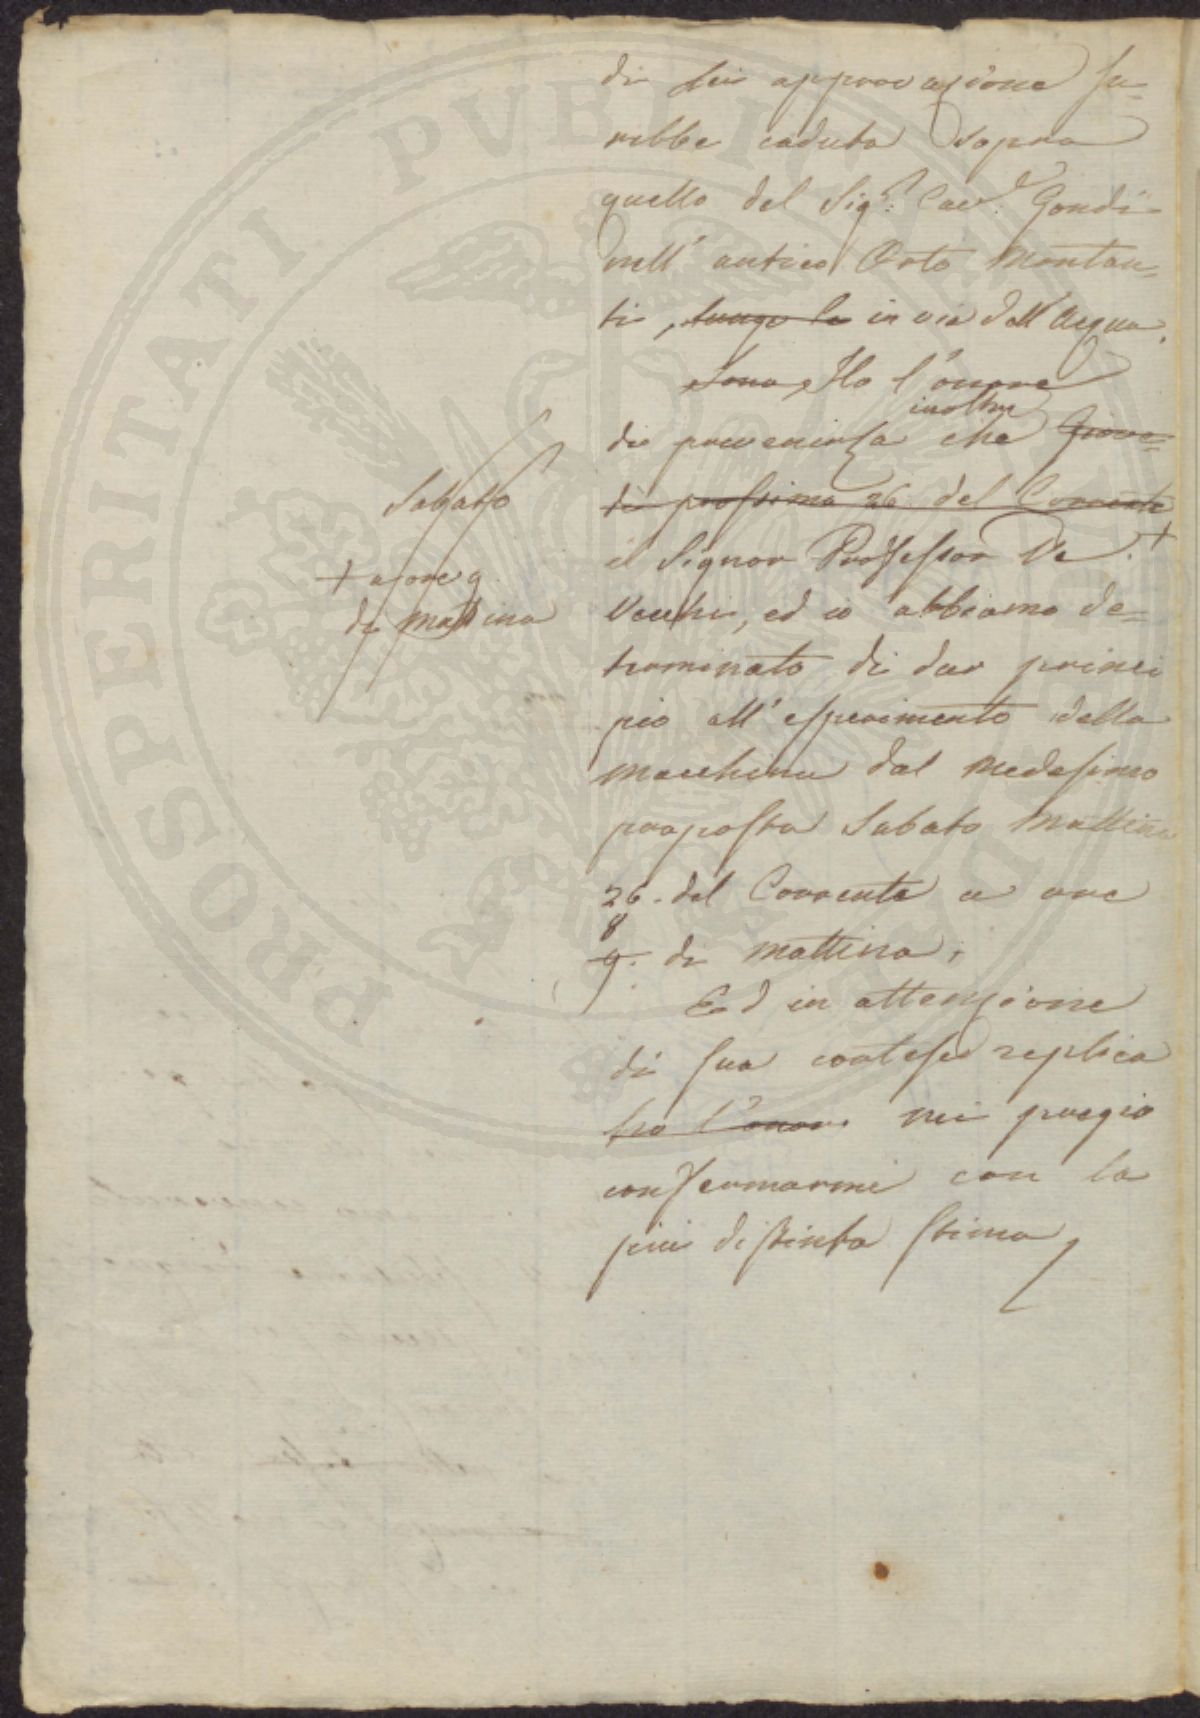 di lei approvazione sa-
rebbe caduta sopra
quello del Sig.r Cav.e Gondi
nell' antico Orto Montan=
ti, lungo la in via dell'Acqua.
Sono, Ho l'onore
inoltre
di prevenirla che Giove=
dì prossimo 26. del Corrente +
il Signor Professor De
Vecchi, ed io abbiamo de=
terminato di dar princi
pio all' esperimento della
macchina dal medesimo
proposta Sabato Mattina
26. del Corrente a ore
8
9. di mattina.
Ed in attenzione
di sua cortese replica
ho l'onore mi pregio
confermarmi con la
più distinta stima
Sabato
+ a ore 9.
di mattina
PROSPERITATI PUBLICAE